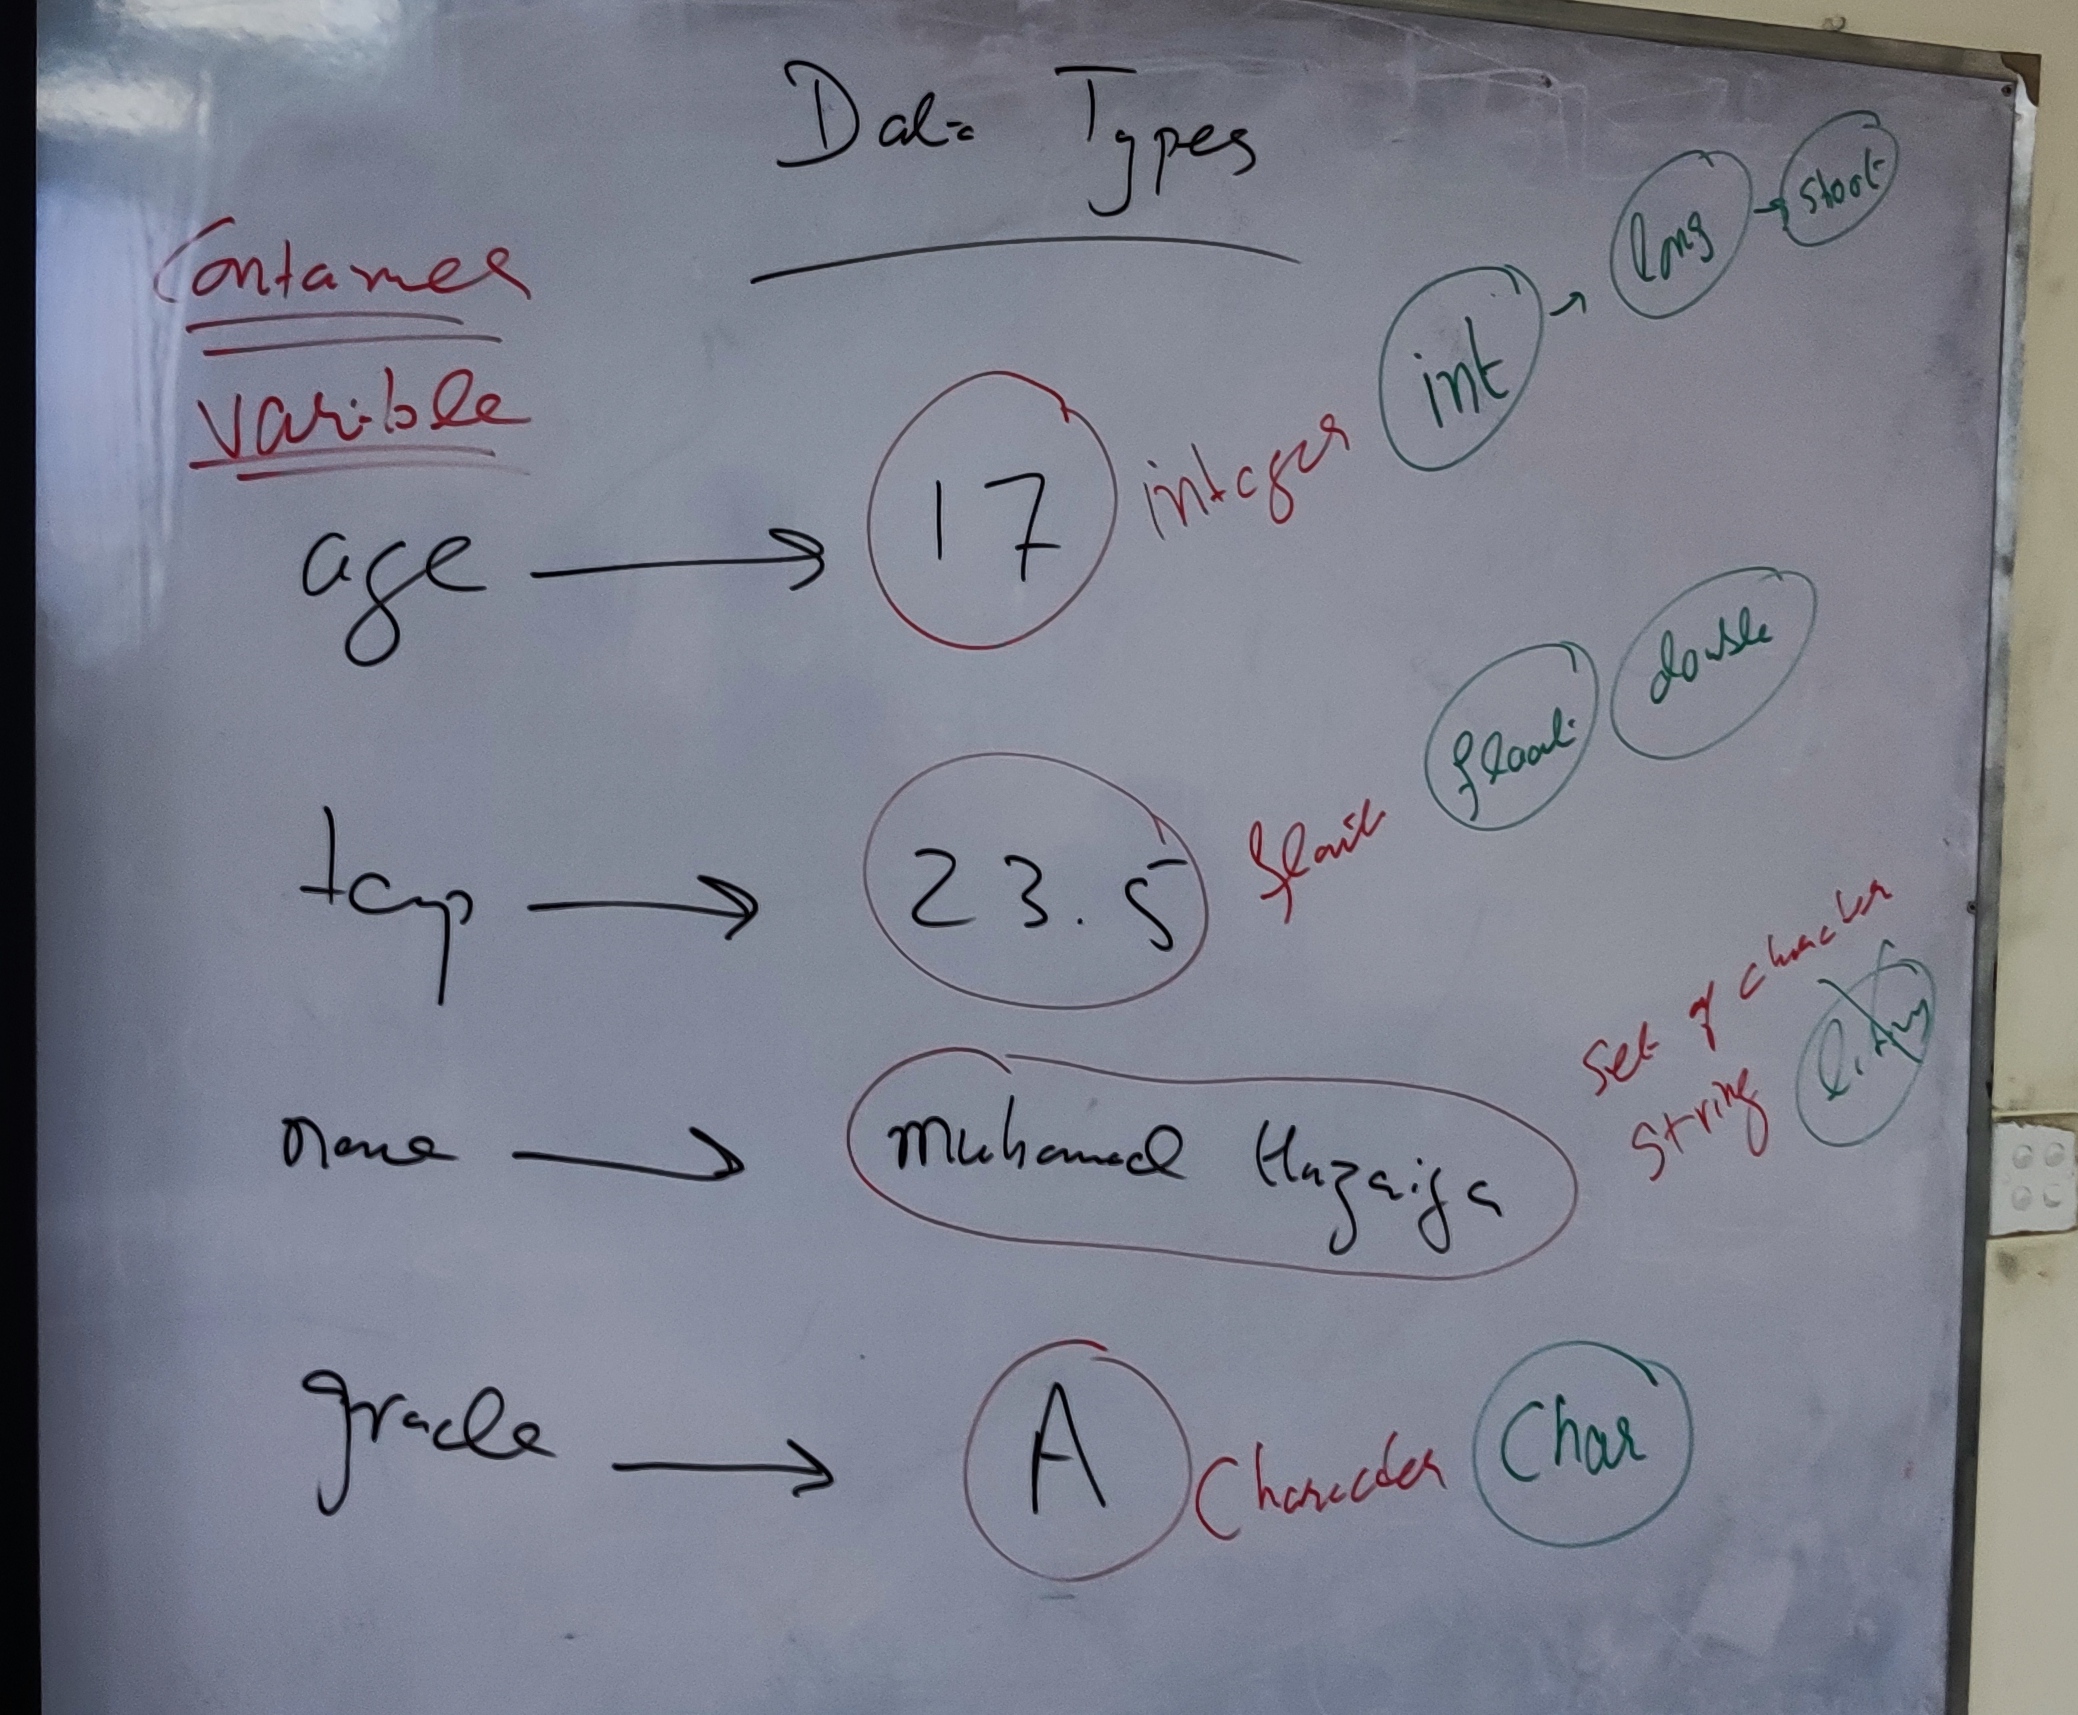 Data Types
Container
Varible
age → 17 integer int → long → short
temp → 23.5 float float double
name → Muhamad Huzaifa set of character
string
grade → A Character Char